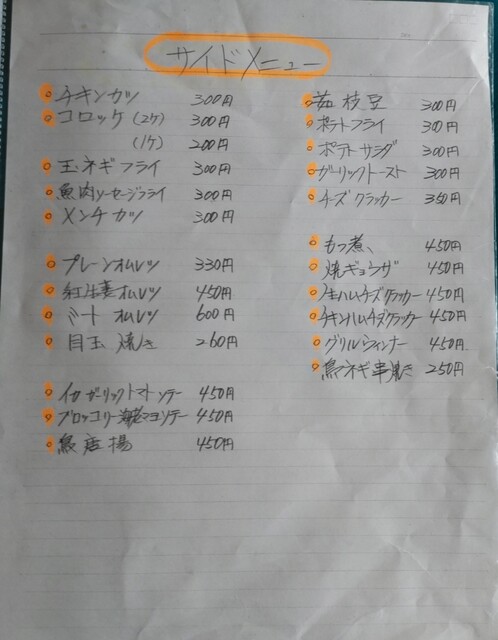 サイドメニュー
チキンカツ 300円
コロッケ (2ケ) 300円
(1ケ) 200円
玉ネギフライ 300円
魚肉ソーセージフライ 300円
メンチカツ 300円
プレーンオムレツ 330円
紅生姜オムレツ 450円
ミートオムレツ 600円
目玉焼き 260円
イカガーリックトマトソテー 450円
ブロッコリー海老マヨソテー 450円
鳥唐揚 450円
茄枝豆 300円
ポテトフライ 300円
ポテトサラダ 300円
ガーリックトースト 300円
チーズクラッカー 350円
もつ煮 450円
焼ギョウザ 450円
生ハムチーズクラッカー 450円
チキンハムチーズクラッカー 450円
グリルウィンナー 450円
鳥ネギ串焼き 250円